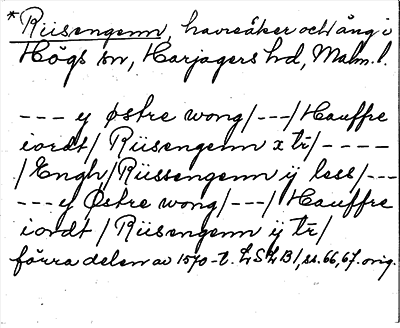 *Riisengenn, havreåker och äng i
Högs sn, Harjagers hd, Malm. l.
--- y Østre wong/---/Hauffre
iordt/Riisengenn x tr/----
/Engh/Riissengenn ÿ less/---
---y Østre wong/---/Hauffre
iordt/Riisengenn ÿ tr/
förra delen av 1570-t. LSLB1, ss. 66, 67. orig.